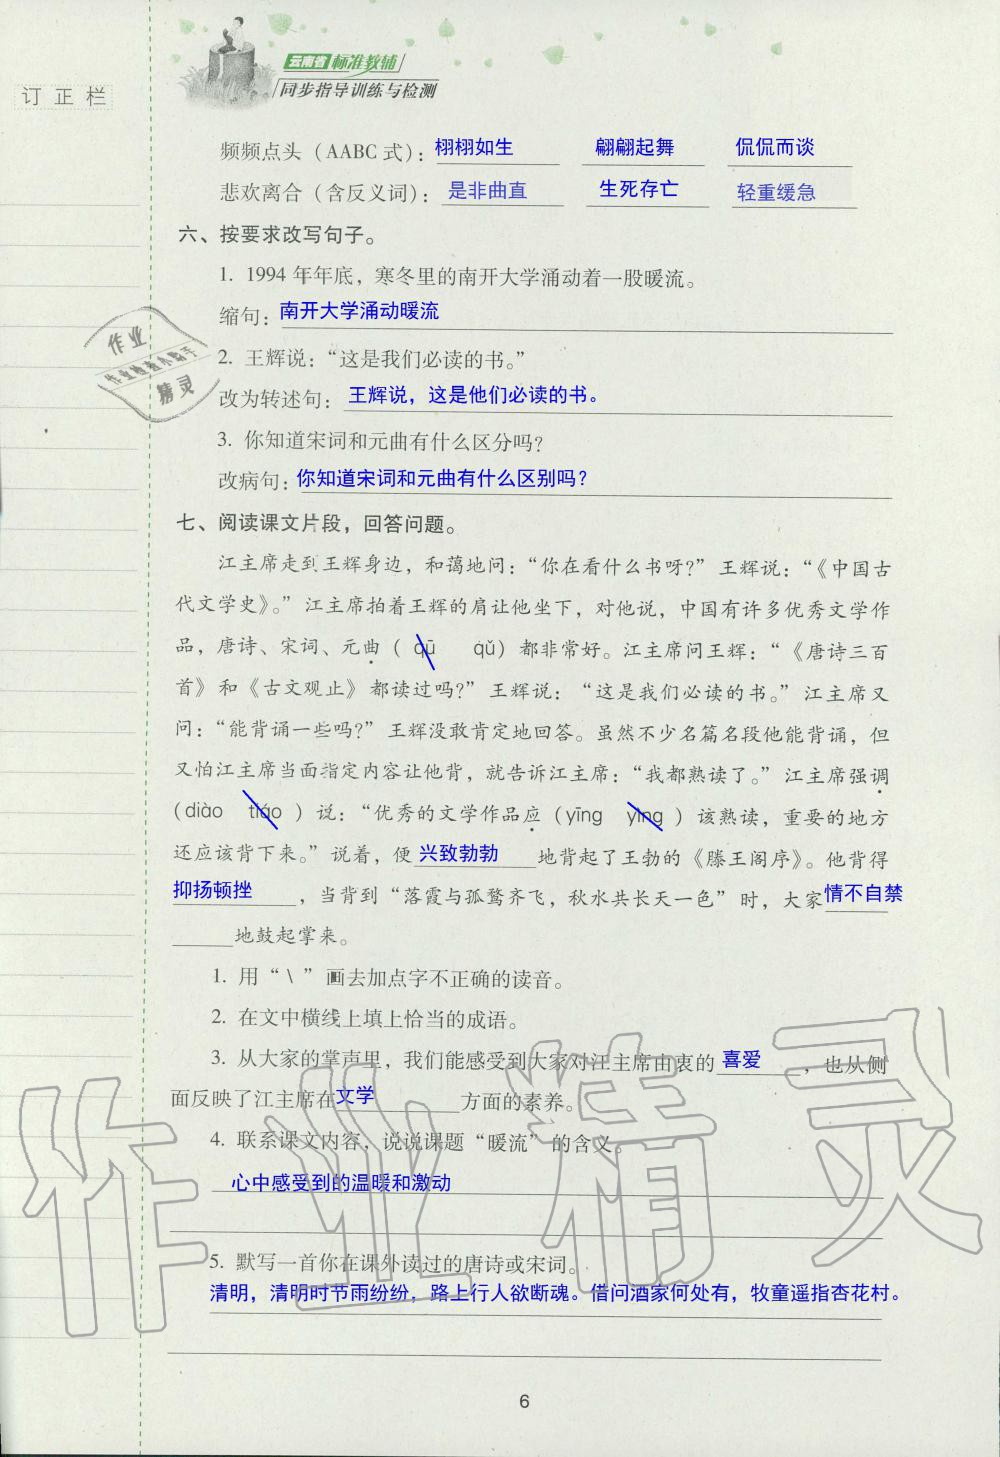 云南省标准教辅
订正栏
同步指导训练与检测
频频点头（AABC 式）：栩栩如生 翩翩起舞 侃侃而谈
悲欢离合（含反义词）：是非曲直 生死存亡 轻重缓急
六、按要求改写句子。
1. 1994 年年底，寒冬里的南开大学涌动着一股暖流。
缩句：南开大学涌动暖流
2. 王辉说：“这是我们必读的书。”
改为转述句：王辉说，这是他们必读的书。
3. 你知道宋词和元曲有什么区分吗？
改病句：你知道宋词和元曲有什么区别吗？
七、阅读课文片段，回答问题。
江主席走到王辉身边，和蔼地问：“你在看什么书呀？”王辉说：“《中国古
代文学史》。”江主席拍着王辉的肩让他坐下，对他说，中国有许多优秀文学作
品，唐诗、宋词、元曲（ qū qǔ）都非常好。江主席问王辉：“《唐诗三百
首》和《古文观止》都读过吗？”王辉说：“这是我们必读的书。”江主席又
问：“能背诵一些吗？”王辉没敢肯定地回答。虽然不少名篇名段他能背诵，但
又怕江主席当面指定内容让他背，就告诉江主席：“我都熟读了。”江主席强调
（diào tiáo ）说：“优秀的文学作品应（yīng yìng ）该熟读，重要的地方
还应该背下来。”说着，便 兴致勃勃 地背起了王勃的《滕王阁序》。他背得
抑扬顿挫 ，当背到“落霞与孤鹜齐飞，秋水共长天一色”时，大家情不自禁
地鼓起掌来。
1. 用“\”画去加点字不正确的读音。
2. 在文中横线上填上恰当的成语。
3. 从大家的掌声里，我们能感受到大家对江主席由衷的 喜爱 ，也从侧
面反映了江主席在文学 方面的素养。
4. 联系课文内容，说说课题“暖流”的含义。
心中感受到的温暖和激动
5. 默写一首你在课外读过的唐诗或宋词。
清明，清明时节雨纷纷，路上行人欲断魂。借问酒家何处有，牧童遥指杏花村。
6
作业
作业检查小助手
精灵
作业精灵